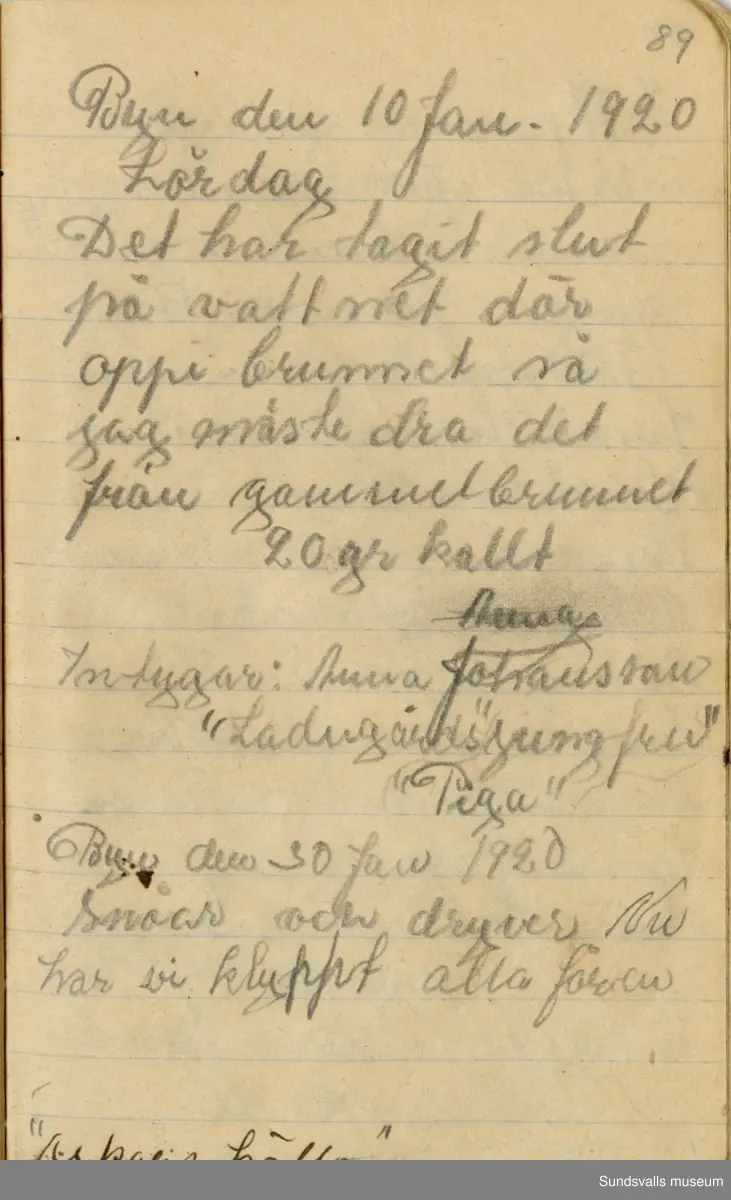 89
Byn den 10 Jan. 1920
Lördag
Det har tagit slut
på vattnet där
oppi brunnet så
gag måste dra det
från gammelbrunnet
20 gr kallt
Anna
Intygar: Anna Johansson
"Ladugårds"gungfru"
"Piga"
Byn den 30 Jan 1920
Snöar och dryver Nu
har vi klyppt alla fåren
Sundsvalls museum